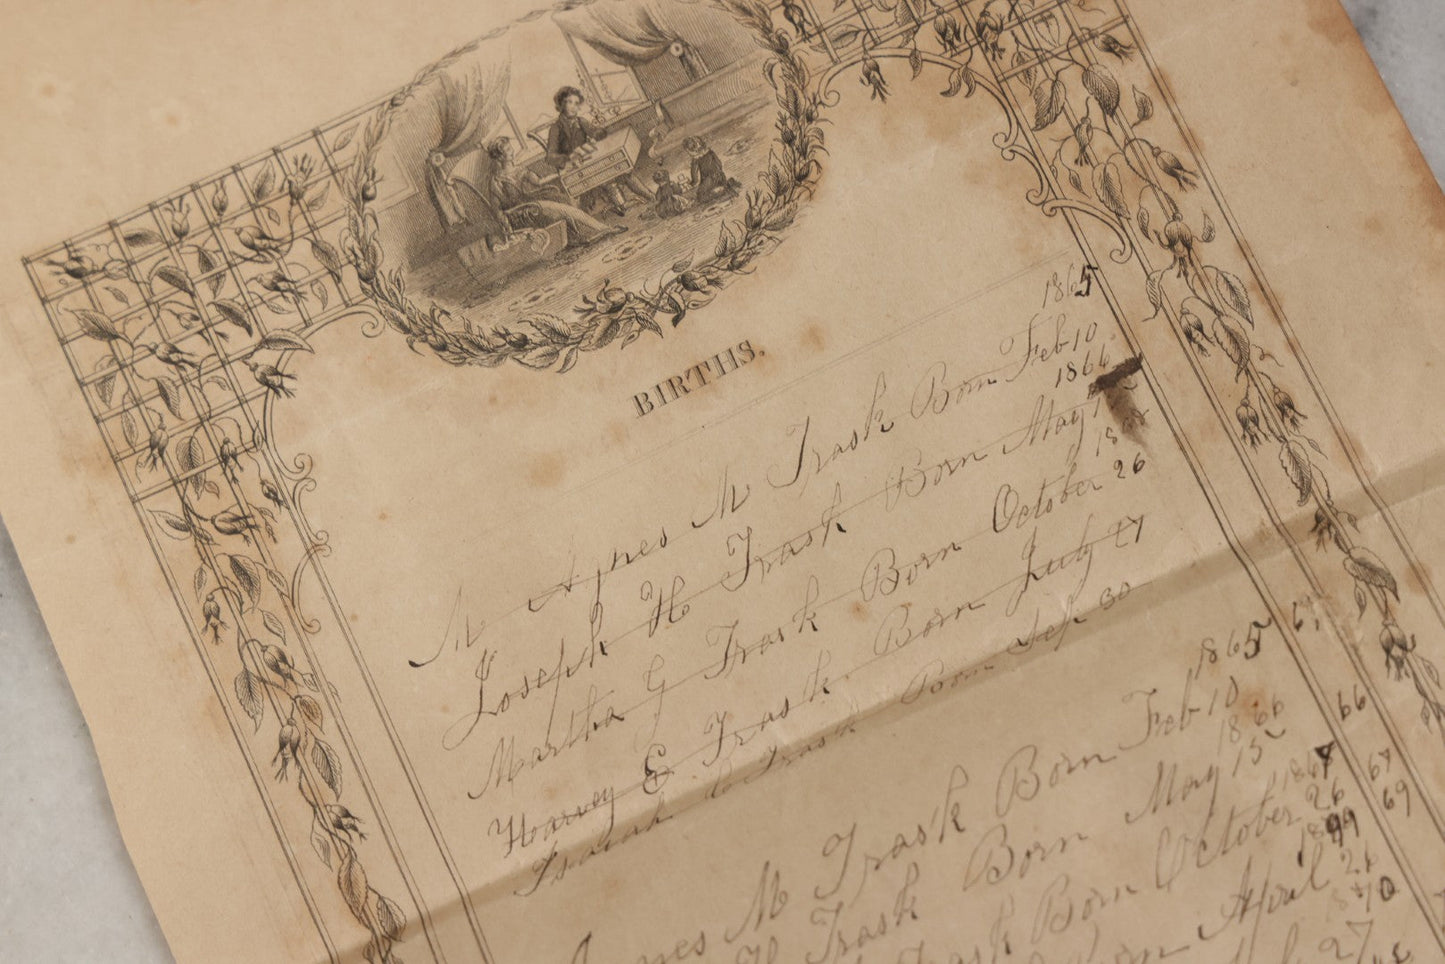 BIRTHS.
1865
M Agnes M Trask Born Feb 10
1866
Joseph H Trask Born May
18
Martha G Trask Born October 26
Harvey E Trask Born July 27
Isaiah C Trask Born Sep 30
1865 67
Agnes M Trask Born Feb 10
1866 66
H Trask Born May 15
1867 67
Trask Born October 26 69
1899
Born April 26
1870
27